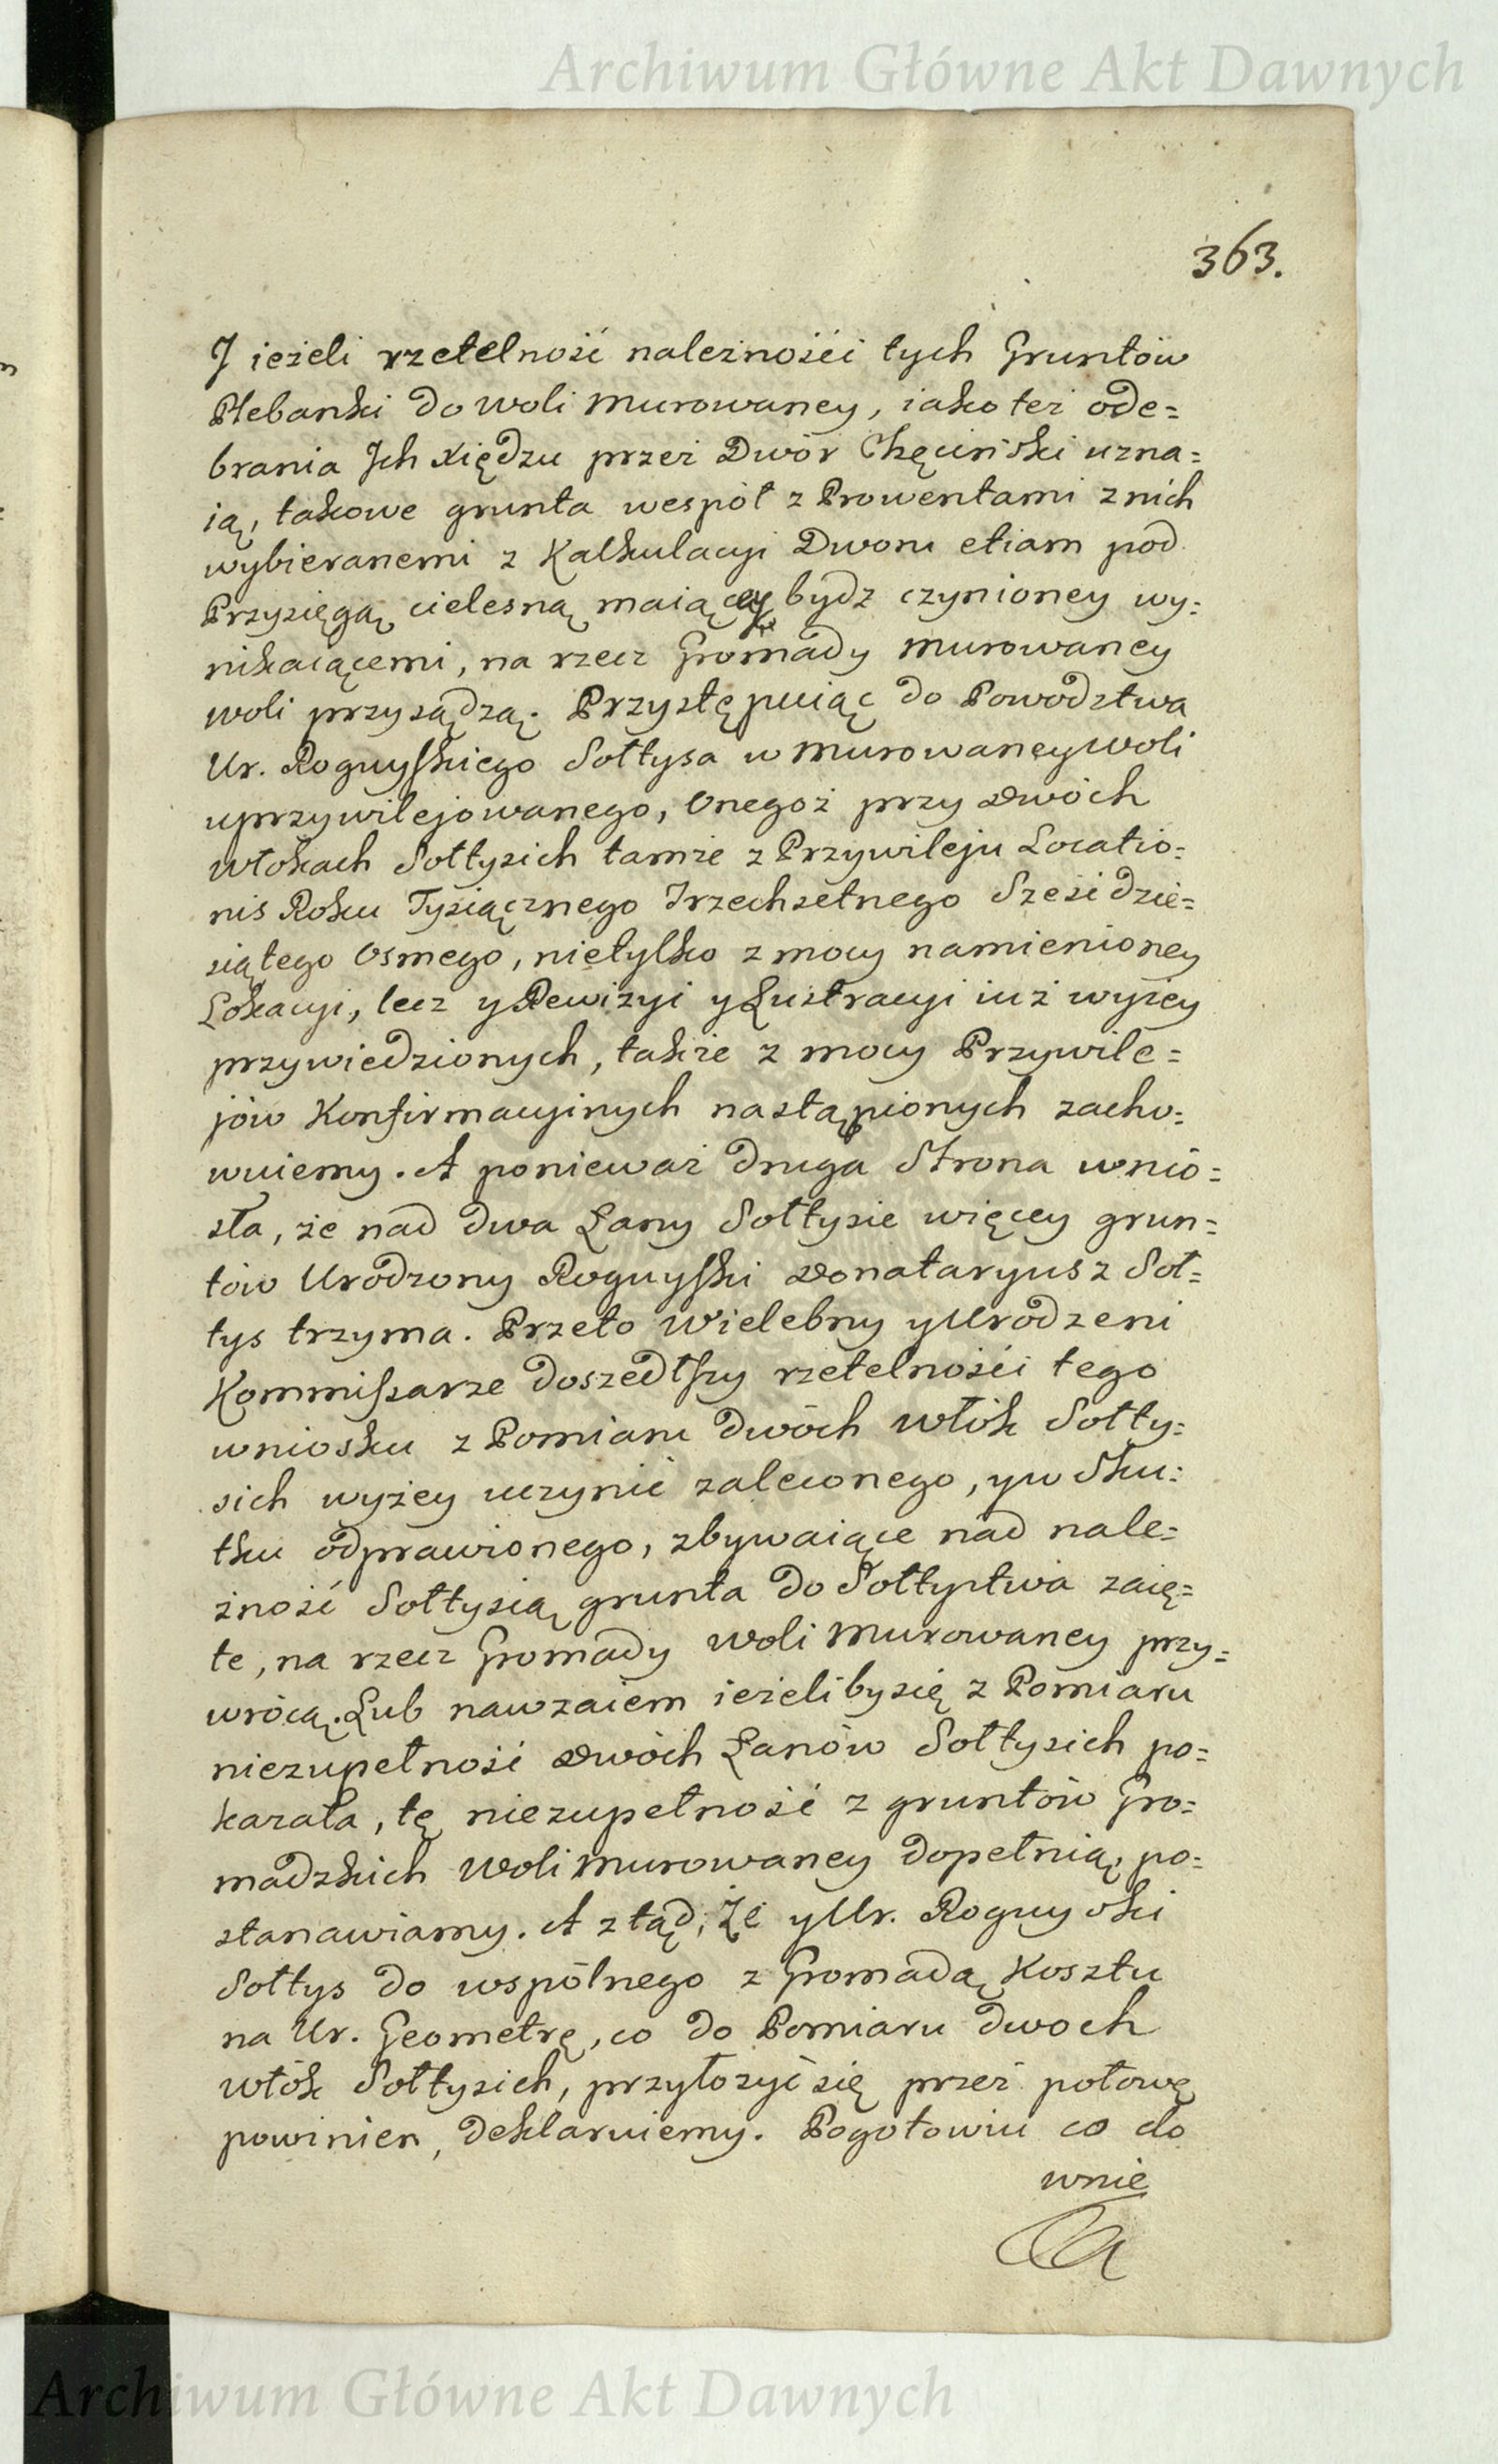 Archiwum Główne Akt Dawnych
363.
J ieżeli rzetelność należnośći tych Gruntów
Plebanki do woli Murowaney, iako też ode=
brania Jch Xiędzu przez Dwór Chęciński uzna=
ią, takowe grunta wespół z Prowentami z nich
wybieranemi z Kalkulacyi Dworu etiam pod
Przysięgą cielesną maiącey bydz czynioney wy=
nikaiącemi, na rzecz Gromady Murowaney
woli przysądzą. Przystępuiąc do Powodztwa
Ur. Roguyskiego Sołtysa w Murowaney woli
uprzywilejowanego, Onegoż przy dwóch
Włokach Sołtysich tamże z Przywileju Locatio=
nis Roku Tysiącznego Trzechsetnego Sześćdzie=
siątego Osmego, nietylko z mocy namienioney
Lokacyi, lecz y Rewizyi y Lustracyi iuż wyżey
przywiedzionych, także z mocy Przywile=
jów Konfirmacyinych nastąpionych zacho=
wuiemy. A ponieważ druga Strona wnio=
sła, że nad dwa Łany Sołtysie więcey grun=
tów Urodzony Roguyski Donataryusz Soł=
tys trzyma. Przeto Wielebny y Urodzeni
Kommissarze doszedłszy rzetelnośći tego
wniosku z Pomiaru dwóch włók Sołty=
sich wyżey uczynić zaleconego, y w Sku=
tku odprawionego, zbywaiące nad nale=
żność Sołtysią grunta do Sołtystwa zaię=
te, na rzecz Gromady woli Murowaney przy=
wrócą. Lub nawzaiem ieżeliby się z Pomiaru
niezupełność dwóch Łanów Sołtysich po=
kazała, tę niezupełność z gruntów Gro=
madzkich Woli Murowaney dopełnią, po=
stanawiamy. A ztąd, że y Ur. Roguyski
Sołtys do wspólnego z Gromadą Kosztu
na Ur. Geometrę, co do Pomiaru dwoch
włók Sołtysich, przyłożyć się przez połowę
powinien, deklaruiemy. Pogotowiu co do
wnie
Archiwum Główne Akt Dawnych